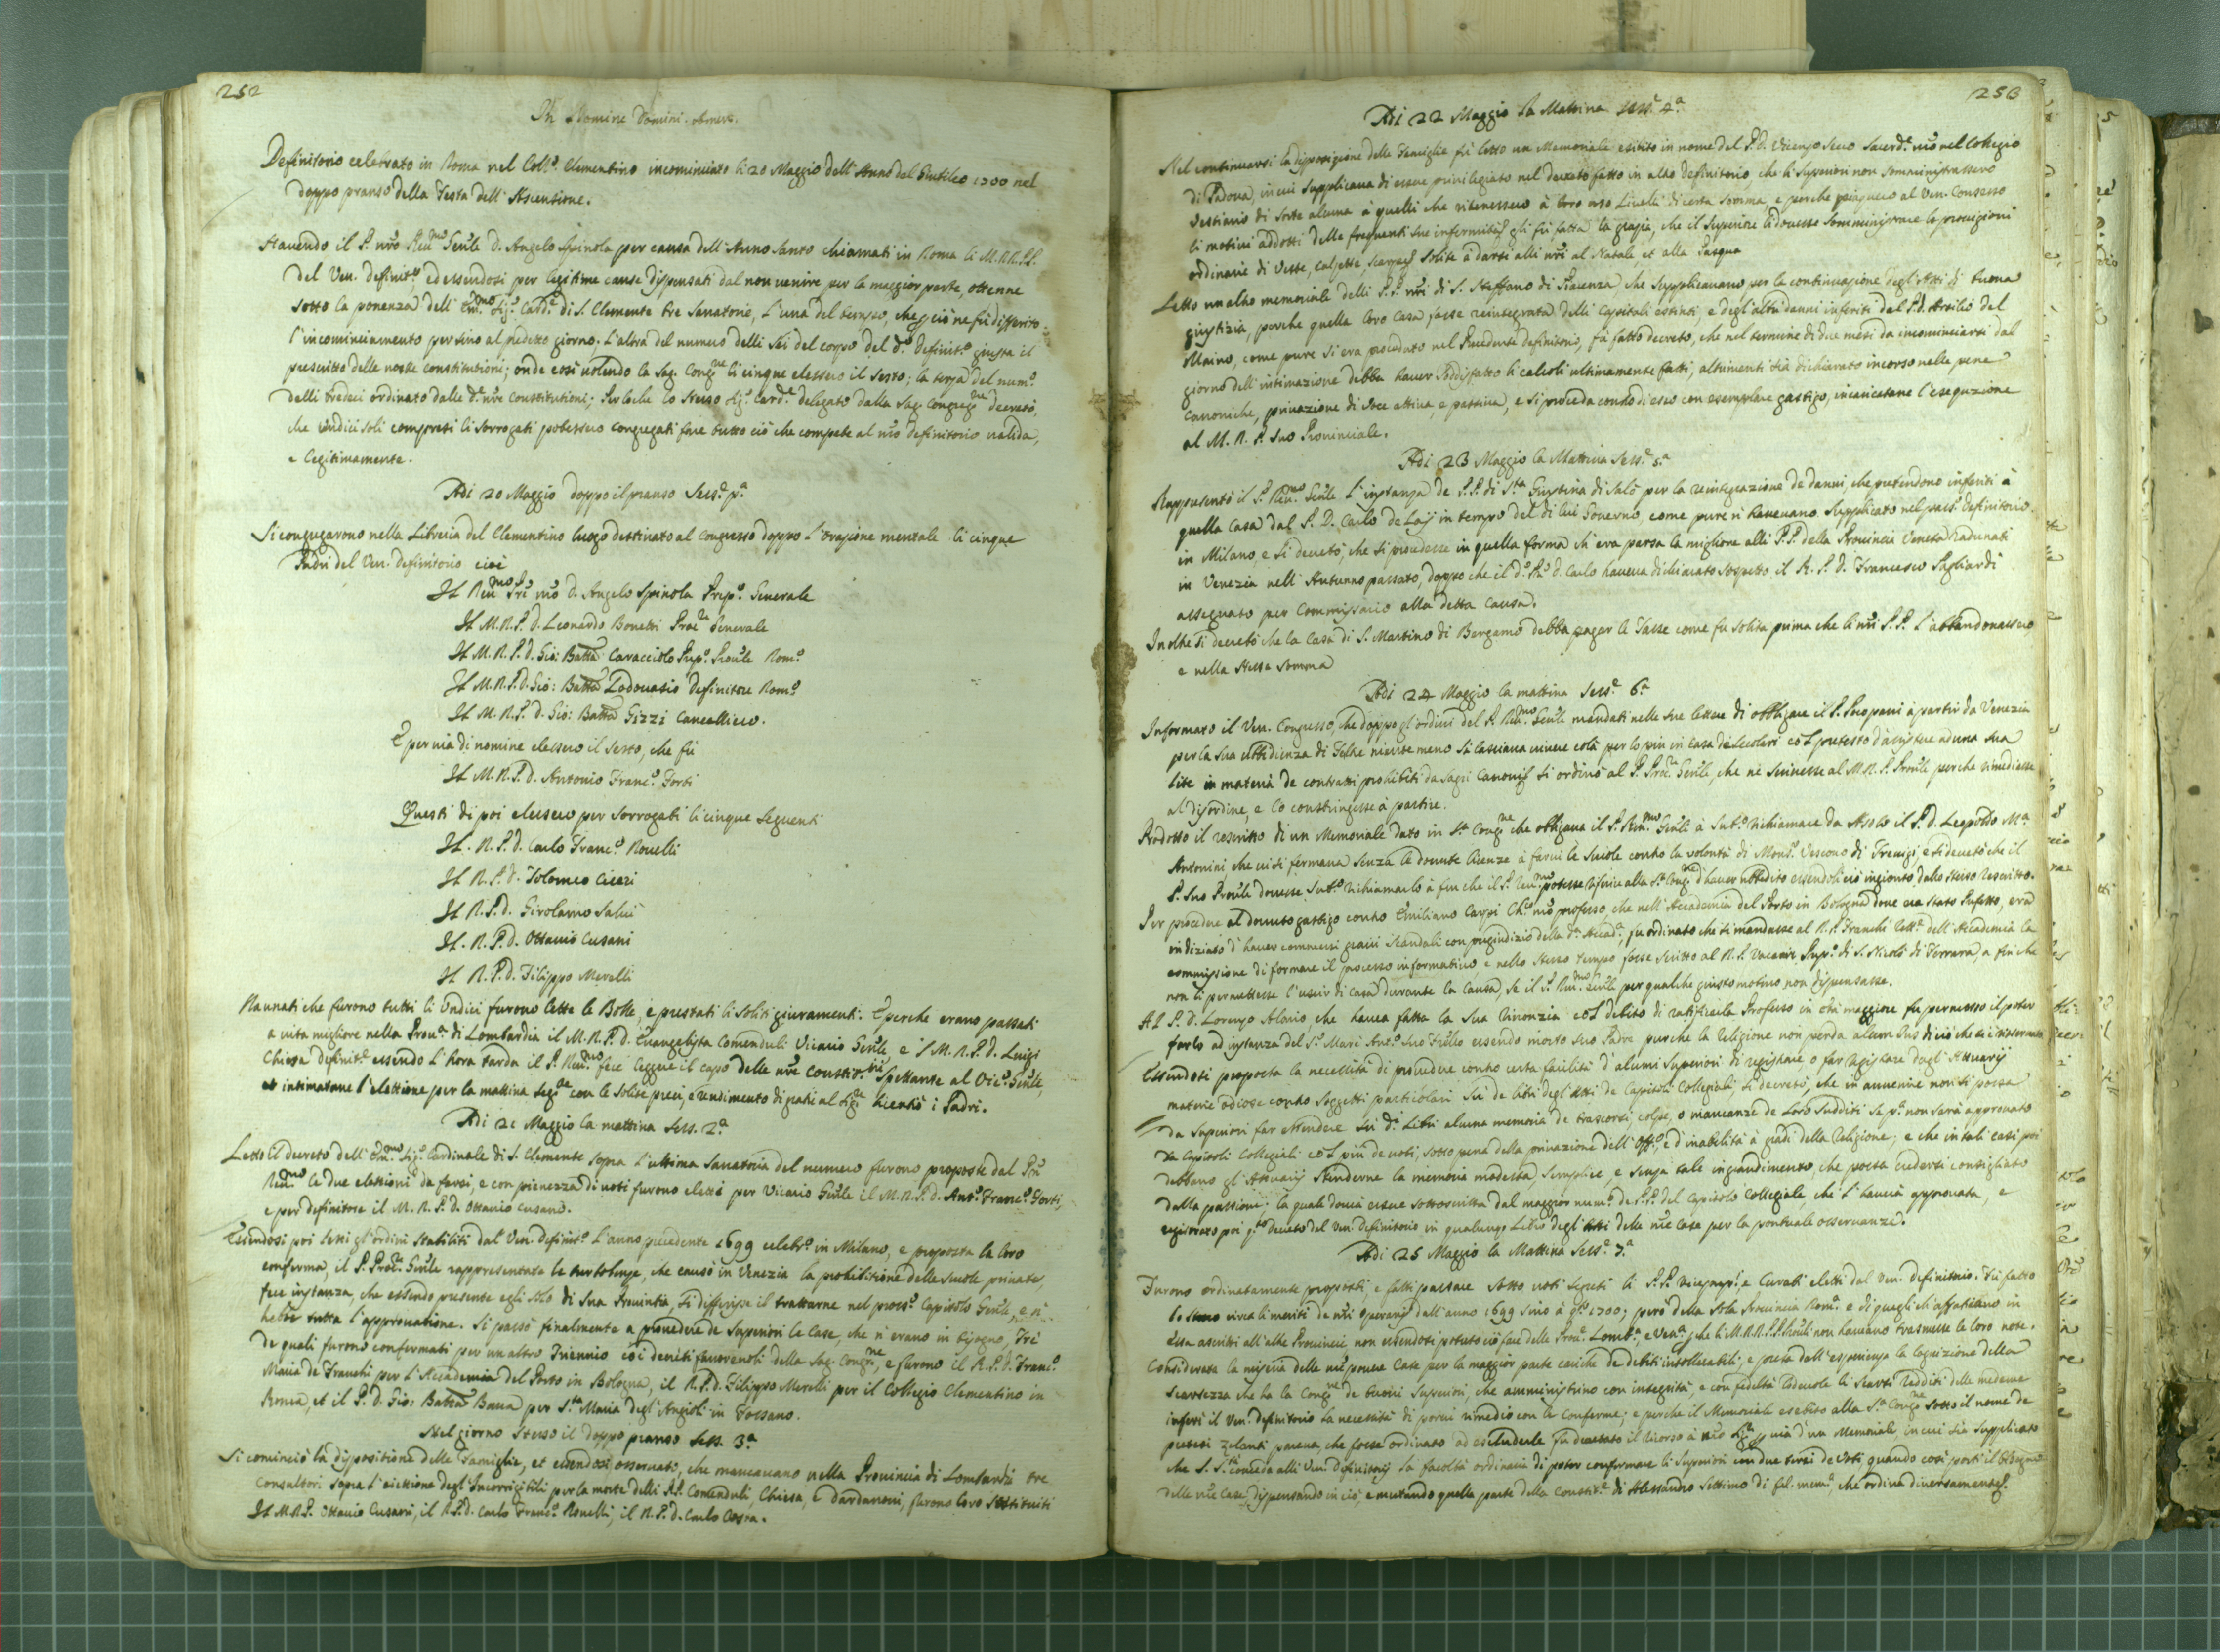 252
In Nomine Domini. Amen.
Definitorio celebrato in Roma nel Coll.º Clementino incominciato li 20 Maggio dell'Anno del Giubileo 1700 nel
doppo pranso della Festa dell'Ascensione.
Havendo il P. nrõ Reu.mo Gen̄le D. Angelo Spinola per causa dell'Anno Santo chiamati in Roma li M.R.R.P.P.
del Ven. Definit.º ed essendosi per legitime cause dispensati dal non venire per la maggior parte, ottenne
sotto la ponenza dell'Em.mo Sig.r Card.e di S. Clemente tre Sanatorie, l'una del tempo, che ne fù differito
l'incominciamento per sino al predetto giorno. L'altra del numero delli Sei del corpo del d.º Definit.º giusta il
prescritto delle nostre constitutioni; onde così volendo la Sag. Cong.ne li cinque elessero il Sesto; la terza del num.º
delli tredeci ordinato dalle d.e nrē Constitutioni; Perloche lo Stesso Sig.r Card.e delegato dalla Sag. Congreg.ne decretò,
che undici soli compresi li sorrogati potessero congregati fare tutto ciò che compete al nrõ Definitorio valida,
e legitimamente.
Adi 20 Maggio doppo il pranso Sess.e p.a
Si congregarono nella Libreria del Clementino luogo destinato al Congresso doppo l'orazione mentale li cinque
Padri del Ven. Definitorio cioè
Il Reu.mo Prē nrõ D. Angelo Spinola Prep.º Generale
Il M.R.P. D. Leonardo Bonetti Proc.re Generale
Il M.R.P. D. Gio: Batta Caracciolo Prep.º Prou̇le Rom.º
Il M.R.P. D. Gio: Batta Lodouasio Definitore Rom.º
Il M.R.P. D. Gio: Batta Gizzi Cancelliero.
E per via di nomine elessero il Sesto, che fù
Il M.R.P. D. Antonio Franc.º Forti
Questi di poi elessero per Sorrogati li cinque Seguenti
Il R.P. D. Carlo Franc.º Rouelli
Il R.P. D. Tolomeo Ciceri
Il R.P. D. Girolamo Salui
Il R.P. D. Ottauio Cusani
Il R.P. D. Filippo Merelli
Raunati che furono tutti li Undici furono lette le Bolle, e prestati li soliti giuramenti. E perche erano passati
a vita migliore nella Prou.a di Lombardia il M.R.P. D. Euangelista Comenduli Vicario Gen̄le, e 'l M.R.P. D. Luigi
Chiesa Definit.e essendo l'hora tarda il P. Reu.mo fece leggere il capo delle nrē Constit.ni Spettante al Vic.º Gen̄le,
et intimatane l'elettione per la mattina seg.te con le solite preci, e rendimento di gratie al Sig.re licentiò i Padri.
Adi 21 Maggio la mattina Sess. 2.a
Letto il decreto dell'Em.mo Sig.r Cardinale di S. Clemente sopra l'ultima Sanatoria del numero furono proposte dal Prē
Reu.mo le due elettioni da farsi, e con pienezza di voti furono eletti per Vicario Gen̄le il M.R.P. D. Ant.º Franc.º Forti,
e per definitore il M.R.P. D. Ottauio Cusano.
Essendosi poi letti gl'ordini stabiliti dal Ven. Definit.º l'anno precedente 1699 celebr.º in Milano, e proposta la loro
conferma, il P. Proc.re Gen̄le rappresentate le turbolenze, che causò in Venezia la prohibitione delle scuole priuate,
fece instanza, che essendo presente egli solo di sua Prouintia, si differisse il trattarne nel pross.º Capitolo Gen̄le, e n'
hebbe tutta l'approuatione. Si passò finalmente a prouedere de Superiori le Case, che n'erano in bisogno, Tre
de quali furono confermati per un altro Triennio co i decreti fauoreuoli della Sag. Cong.ne, e furono il R.P. D. Franc.º
Maria de Franchi per l'Accademia del Porto in Bologna, il R.P. D. Filippo Merelli per il Collegio Clementino in
Roma, et il P. D. Gio: Batta Baua per S.ta Maria degl'Angioli in Fossano.
Nel giorno Stesso il doppo pranso Sess. 3.a
Si cominciò la dispositione delle Famiglie, et essendosi osseruati, che mancauano nella Prouincia di Lombardia tre
Consultori sopra l'eiettione degl'Incorrigibili per la morte delli PP. Comenduli, Chiesa, e Dardanoni, furono loro Sostituiti
Il M.R.P. Ottauio Cusani, il R.P. D. Carlo Franc.º Rouelli, il R.P. D. Carlo Costa.
253
Adi 22 Maggio la Mattina Sess.e 4.a
Nel continuarsi la disposizione delle Famiglie fù letto un Memoriale esibito in nome del P. D. Vicenzo Secco Sacerd.e nrõ nel Collegio
di Padoua, in cui supplicaua di essere priuilegiato nel decreto fatto in altro Definitorio che li Superiori non somministrassero
Vestiario di sorte alcuna à quelli che ritenessero à loro uso Liuelli di certa somma, e perche piacquero al Ven. Consesso
li motiui addotti delle frequenti sue infermità gli fù fatta la grazia, che il Superiore li douesse somministrare le prouigioni
ordinarie di Veste, calzette, scarpe solite à darsi alli nrī al Natale, et alla Pasqua
Letto un altro memoriale delli P.P. nrī di S. Steffano di Piacenza, che supplicauano per la continuazione degl'Atti di buona
giustizia, perche quella loro Casa fosse reintegrata delli capitali estinti e degl'altri danni inferiti dal P. D. Attilio del
Maino, come pure si era proceduto nel precedente Definitorio, fù fatto decreto, che nel termine di due mesi da incominciarsi dal
giorno dell'intimazione debba hauer soddisfatto li calcoli ultimamente fatti, altrimenti sia dichiarato incorso nelle pene
Canoniche, priuazione di voce attiua e passiua, e si proceda contro di esso con esemplare gastigo, incaricatane l'esequzione
al M.R.P. suo Prouinciale.
Adi 23 Maggio la Mattina Sess.e 5.a
Rappresentò il P. Reu.mo Gen̄le l'instanza de P.P. di S.ta Giustina di Salò per la reintegrazione de danni, che pretendono inferiti à
quella Casa dal P. D. Carlo de Laÿ in tempo del di lui Gouerno, come pure n'haueuano supplicato nel pass.º Definitorio
in Milano, e si decretò, che si procedesse in quella forma ch'era parsa la migliore alli P.P. della Prouincia Veneta Radunati
in Venezia nell'Autunno passato, doppo che il d.º Prē D. Carlo haueua dichiarato sospetto il R.P. D. Francesco Pagliardi
assegnato per Commissario alla detta Causa.
Inoltre si decretò che la Casa di S. Martino di Bergamo debba pagar le Tasse come fu solita prima che li nrī P.P. l'abbandonassero
e nella stessa Somma
Adi 24 Maggio la mattina Sess.e 6.a
Informato il Ven. Congresso, che doppo gl'ordini del P. Reu.mo Gen̄le mandati nelle sue lettere di obbligare il P. Procopani à partir da Venezia
per la sua ubbidienza di Feltre niente meno si lasciaua viuere colà per lo più in Casa de Secolari co 'l pretesto d'assistere ad una sua
lite in materia de contratti prohibiti da Sagri Canoni si ordinò al P. Proc.re Gen̄le, che ne scriuesse al M.R.P. Prou̇le perche rimediasse
al disordine, e lo constringesse à partire.
Prodotto il rescritto di un Memoriale dato in S.a Cong.ne che obligaua il P. Reu.mo Gen̄le à Sub.º richiamare da Asolo il P. D. Leopoldo M.a
Antonini, che iui si fermaua senza le douute licenze à farui le Scuole contro la volontà di Mons.r Vescouo di Treuigi, e si decretò che il
P. suo Prou̇le douesse sub.º richiamarlo à fin che il P. Reu.mo potesse riferire alla S.a Cong.ne d'hauer ubbedito essendoli ciò ingionto dallo stesso Rescritto.
Per procedere al douuto gastigo contro Emiliano Carpi Ch.º nrõ professo, che nell'Accademia del Porto in Bologna doue era stato Prefetto, era
indiziato d'hauer commessi graui scandali con pregiudizio della d.a Accad.a, fu ordinato che si mandasse al R.P. Franchi Rett.e dell'Accademia la
commissione di formare il processo informatiuo, e nello stesso tempo fosse scritto al R.P. Prep.º di S. Nicolò di Ferrara, a fin che
non li permettesse l'uscir di casa durante la Causa, se il P. Reu.mo Gen̄le per qualche giusto motiuo non dispensasse.
Al P. D. Lorenzo Alouio, che haueua fatta la sua rinonzia co 'l debito di ratificarla Professo in età maggiore fu permesso il poter
farlo ad instanza del S.r Marc'Ant.º suo Frãllo essendo morto suo Padre purche la Religione non perda alcun Ius di ciò che se
Essendosi proposta la necessità di prouedere contro certa facilità d'alcuni Superiori di registrare, o far registrare dagl'Attuarij
materie odiose contro soggetti particolari Su de libri degl'Atti de Capitoli Collegiali, si decretò, che in auuenire non si possa
da Superiori far stendere su d.i Libri alcuna memoria de trascorsi, colpe, o mancanze de loro sudditi se p.a non sarà approuato
da Capitoli Collegiali co 'l più de voti, sotto pena della priuazione dell'Off.º, e d'inabilità à gradi della Religione; e che in tali casi poi
debbano gl'Attuarij stenderne la memoria modesta, semplice, e senza tale ingrandimento, che possa credersi consigliato
dalla passione; la quale dourà essere sottoscritta dal maggior num.º de P.P. del Capitolo Collegiale, che l'hauerà approuata, e
registrato poi q.to Decreto del Ven. Definitorio in qualunq. Libro degl'Atti delle nrē Case per la pontuale osseruanza.
Adi 25 Maggio la Mattina Sess.e 7.a
Furono ordinatamente proposti, e fatti passare sotto voti segreti li P.P. e Curati eletti dal Ven. Definitorio. Fù fatto
lo stesso circa li meriti de nrī operarij dall'anno 1699 sino à q.to 1700; però della sola Prouincia Rom.a e di quegli ch'affaticano in
essa ascritti all'altre Prouincie non essendosi potuto ciò fare delle Prou.e Lomb.a e Ven.a che li M.R.R.P.P. Prou̇li non haueano trasmesse le loro note.
Considerata la miseria delle nrē pouere Case per la maggior parte cariche de debiti intollerabili, e presa dall'esperienza la cognizione della
scarsezza che ha la Cong.ne de buoni Superiori, che amministrino con integrità, e con fedeltà lodeuole li scarsi redditi delle medeme
inferì il Ven. Definitorio la necessità di porui rimedio con le conferme; e perche il Memoriale esebito alla S.a Cong.ne sotto il nome de
pretesi zelanti pareua, che fosse ordinato ad escluderle fu decretato il ricorso à uia d'un Memoriale, in cui sia supplicato
che S. S.tà conceda alli Ven. Definitorij la facoltà ordinaria di poter confermare li Superiori con due terzi de voti quando così porti il bisogno
delle nrē Case, dispensando in ciò, e mutando quella parte della Constit.e di Alessandro Settimo di fel. mem.a, che ordina diuersamente.